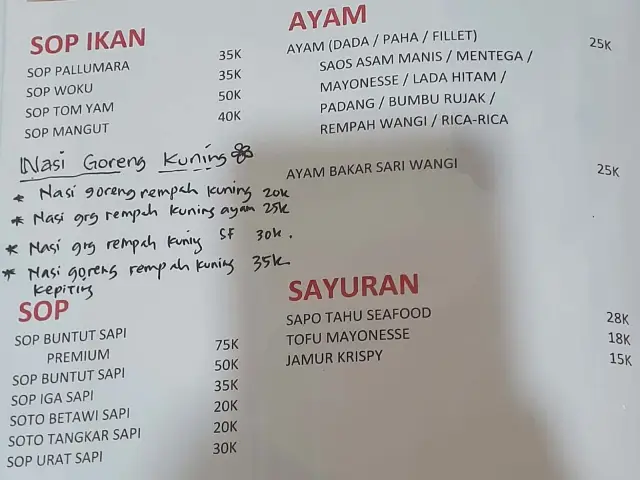 SOP IKAN
SOP PALLUMARA 35K
SOP WOKU 35K
SOP TOM YAM 50K
SOP MANGUT 40K
Nasi Goreng Kuning
* Nasi goreng rempah kuning 20k
* Nasi grg rempah kuning ayam 25k
* Nasi grg rempah kuning SF 30k.
* Nasi goreng rempah kuning 35k
kepiting
SOP
SOP BUNTUT SAPI
PREMIUM 75K
SOP BUNTUT SAPI 50K
SOP IGA SAPI 35K
SOTO BETAWI SAPI 20K
SOTO TANGKAR SAPI 20K
SOP URAT SAPI 30K
AYAM
AYAM (DADA / PAHA / FILLET) 25K
SAOS ASAM MANIS / MENTEGA /
MAYONESSE / LADA HITAM /
PADANG / BUMBU RUJAK /
REMPAH WANGI / RICA-RICA
AYAM BAKAR SARI WANGI 25K
SAYURAN
SAPO TAHU SEAFOOD 28K
TOFU MAYONESSE 18K
JAMUR KRISPY 15K